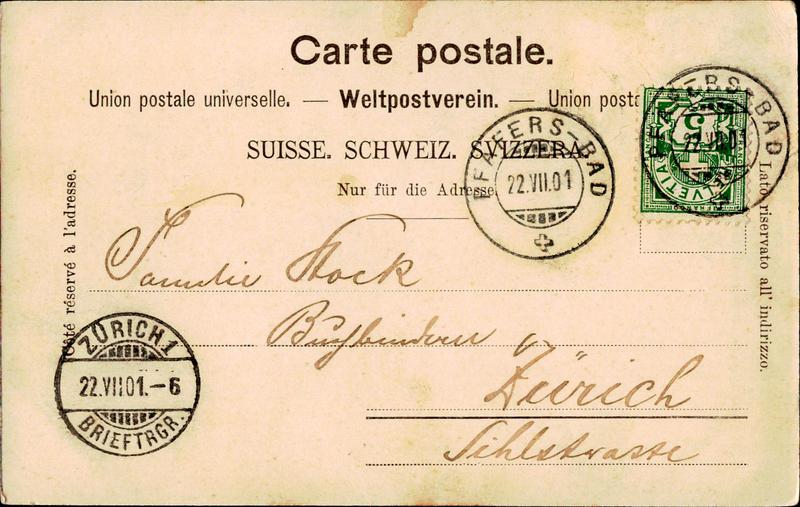 Carte postale.
Union postale universelle. — Weltpostverein. — Union post
SUISSE. SCHWEIZ. SVIZZERA.
Nur für die Adresse
Côté réservé à l'adresse.
Lato riservato all' indirizzo.
PFÄFERS-BAD
22.VII.01
PFÄFERS-BAD
22.VII.01
5
HELVETIA
FRANCO
Familie Stock
Buchbinderei
Zürich
Sihlstrasse
ZÜRICH 1
22.VII.01.-6
BRIEFTRGR.